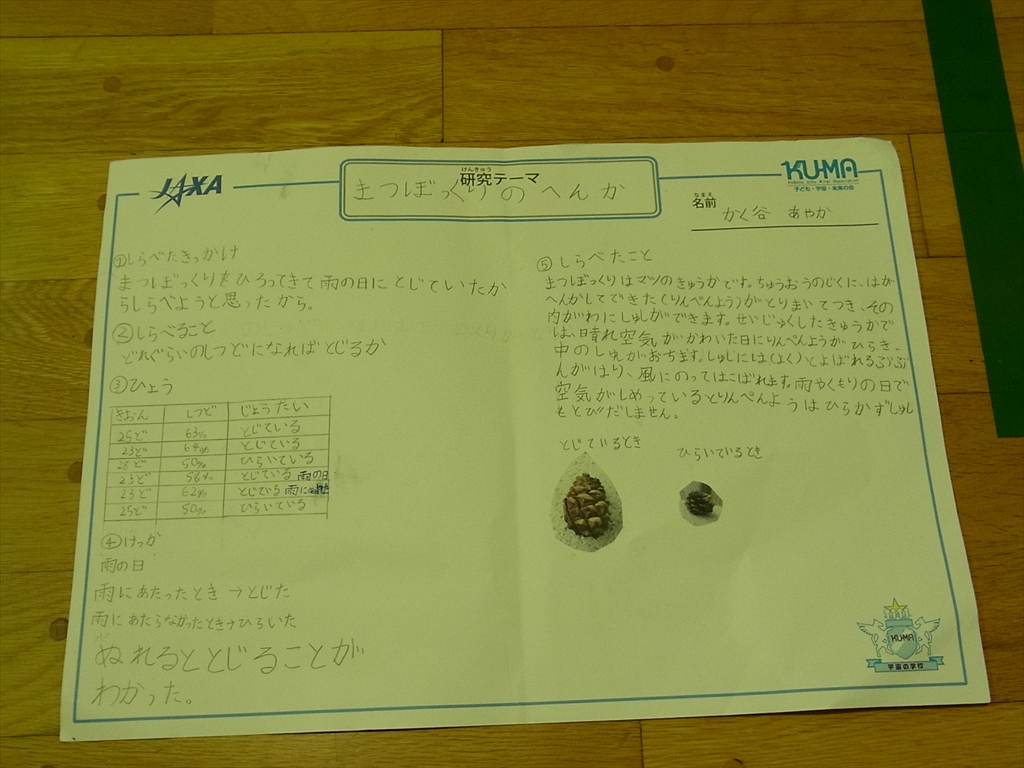 JAXA
けんきゅう
研究テーマ
まつぼっくりのへんか
KUMA
子ども・宇宙・未来の会
なまえ
名前
かく谷 あやか
①しらべたきっかけ
まつぼっくりをひろってきて雨の日にとじていたか
らしらべようと思ったから。
②しらべること
どれぐらいのしつどになればとじるか
③ひょう
きおん しつど じょうたい
25ど 63% とじている
23ど 64% とじている
25ど 50% ひらいている
23ど 58% とじている 雨の日
23ど 62% とじている 雨に
25ど 50% ひらいている
④けっか
雨の日
雨にあたったとき→とじた
雨にあたらなかったとき→ひらいた
ぬれるととじることが
わかった。
⑤しらべたこと
まつぼっくりはマツのきゅうかです。ちゅうおうのじくに、はが
へんかしてできた(りんぺんよう)がとりまいてつき、その
内がわにしゅしができます。せいじゅくしたきゅうかで
は、晴れ空気がかわいた日にりんぺんようがひらき、
中のしゅしがおちます。しゅしには(よく)とよばれるぶぶ
んがはり、風にのってはこばれます。雨やくもりの日で
空気がしめっているとりんぺんようはひらかずしゅし
もとびだしません。
とじているとき
ひらいているとき
KUMA
宇宙の学校